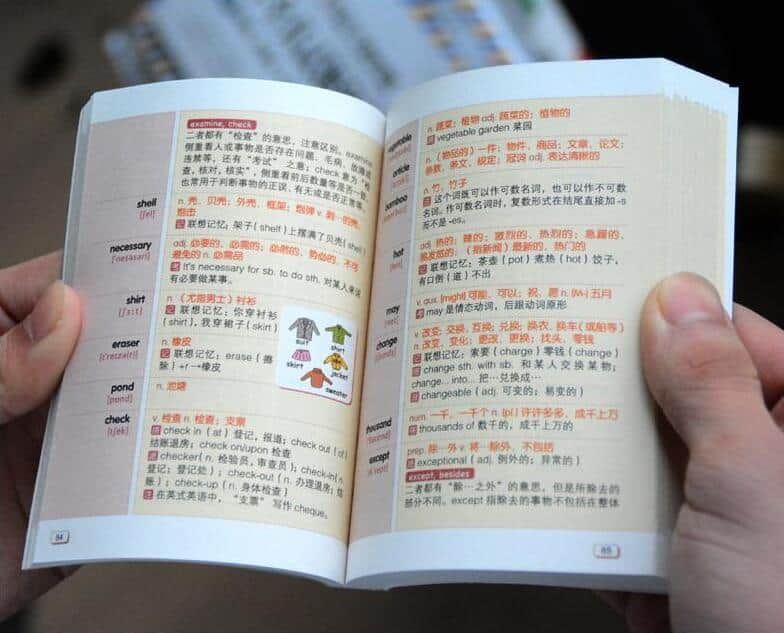 examine, check
二者都有“检查”的意思，注意区别。examine
侧重看人或事物是否存在问题、毛病、故障或
违禁等，还有“考试”之意；check 意为“检
查，核对，核实”，侧重看前后数量等是否一致，
也常用于判断事物的正误、有无或是否正常等。
shell
[ʃel]
n. 壳，贝壳；外壳，框架；炮弹 v. 剥…的壳，
炮击
记 联想记忆：架子(shelf)上摆满了贝壳(shell)
necessary
['nesəsəri]
adj. 必要的，必需的；必然的，势必的，不可
避免的 n. 必需品
考 It's necessary for sb. to do sth. 对某人来说
有必要做某事。
shirt
[ʃɜːt]
n. （尤指男士）衬衫
记 联想记忆：你穿衬衫
(shirt)，我穿裙子(skirt)
suit
shirt
skirt
jacket
sweater
eraser
[ɪ'reɪzə(r)]
n. 橡皮
记 联想记忆：erase（擦
除）+r→橡皮
pond
[pɒnd]
n. 池塘
check
[tʃek]
v. 检查 n. 检查；支票
check in（at）登记，报道；check out（of）
结账退房；check on/upon 检查
checker(n. 检验员，审查员)；check-in(n.
登记；登记处)；check-out（n. 办理退房；结
账）；check-up（n. 身体检查）
注 在英式英语中，“支票”写作 cheque。
84
vegetable
n. 蔬菜；植物 adj. 蔬菜的；植物的
vegetable garden 菜园
article
n. （物品的）一件；物件，商品；文章，论文；
条款，条文，规定；冠词 adj. 表达清晰的
bamboo
n. 竹，竹子
这个词既可以作可数名词，也可以作不可数
名词。作可数名词时，复数形式在结尾直接加 -s
而不是 -es。
hot
adj. 热的；辣的；激烈的，热烈的；急躁的，
易发怒的；（指新闻）最新的，热门的
记 联想记忆：茶壶（pot）煮热（hot）饺子，
有口倒（道）不出
may
v. aux. [might] 可能，可以；祝，愿 n. (M-) 五月
考 may 是情态动词，后跟动词原形
change
v. 改变；交换，互换；兑换；换衣，换车（或船等）
n. 改变，变化；更改，更换；找头，零钱
记 联想记忆：索要（charge）零钱（change）
change sth. with sb. 和某人交换某物；
change... into... 把…兑换成…
changeable（adj. 可变的；易变的）
thousand
num. 一千，一千个 n. [pl.] 许许多多，成千上万
thousands of 数千的，成千上万的
except
prep. 除…外 v. 将…除外，不包括
exceptional（adj. 例外的；异常的）
except, besides
二者都有“除…之外”的意思，但是所除去的
部分不同。except 指除去的事物不包括在整体
85